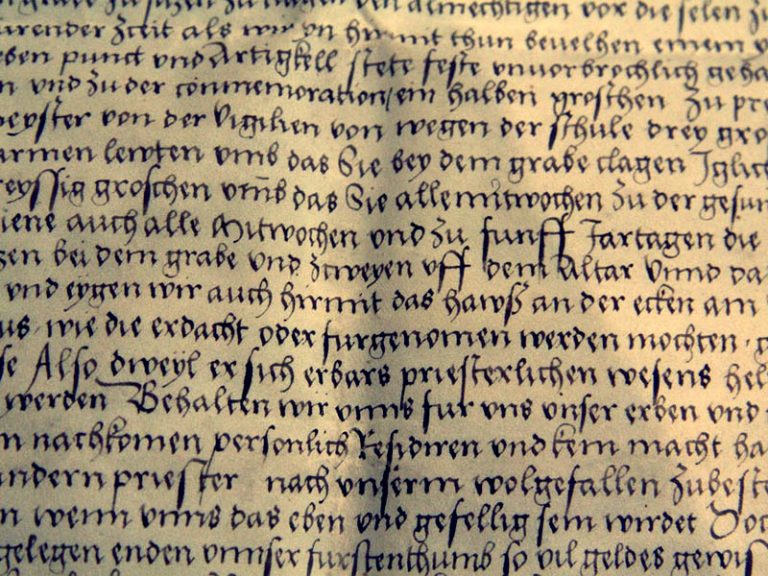 zu sagen den almechtigen vor die selen
urender Zceit als wir yn hirmit thun bevelhen einem
eben punct und Artigkell stete feste unvorbrochlich geha
n und zu der commemoration/ein halben groschen zu pre
eyster von der Vigilien von wegen der schule drey gro
armen lewten umb das Sie bey dem grabe clagen Iglic
reyssig groschen umb das Sie alle mitwochen zu der gesun
iene auch alle Mitwochen und zu funff Jartagen die
zen bei dem grabe und zcweyen uff dem Altar Unnd da
und eygen wir auch hirmit das hawß an der ecken am
us wie die erdacht oder furgenomen werden mochten
se Also dweyl er sich erbars priesterlichen wesens hel
werden Behalten wir unns fur uns unser erben und
n nachkomen personlich Residiren und kein macht ha
andern priester nach unserm wolgefallen zubeste
n wenn unns das eben und gefellig sein wirdet Doc
gelegen enden unnser furstenthumb so vil geldes gewis